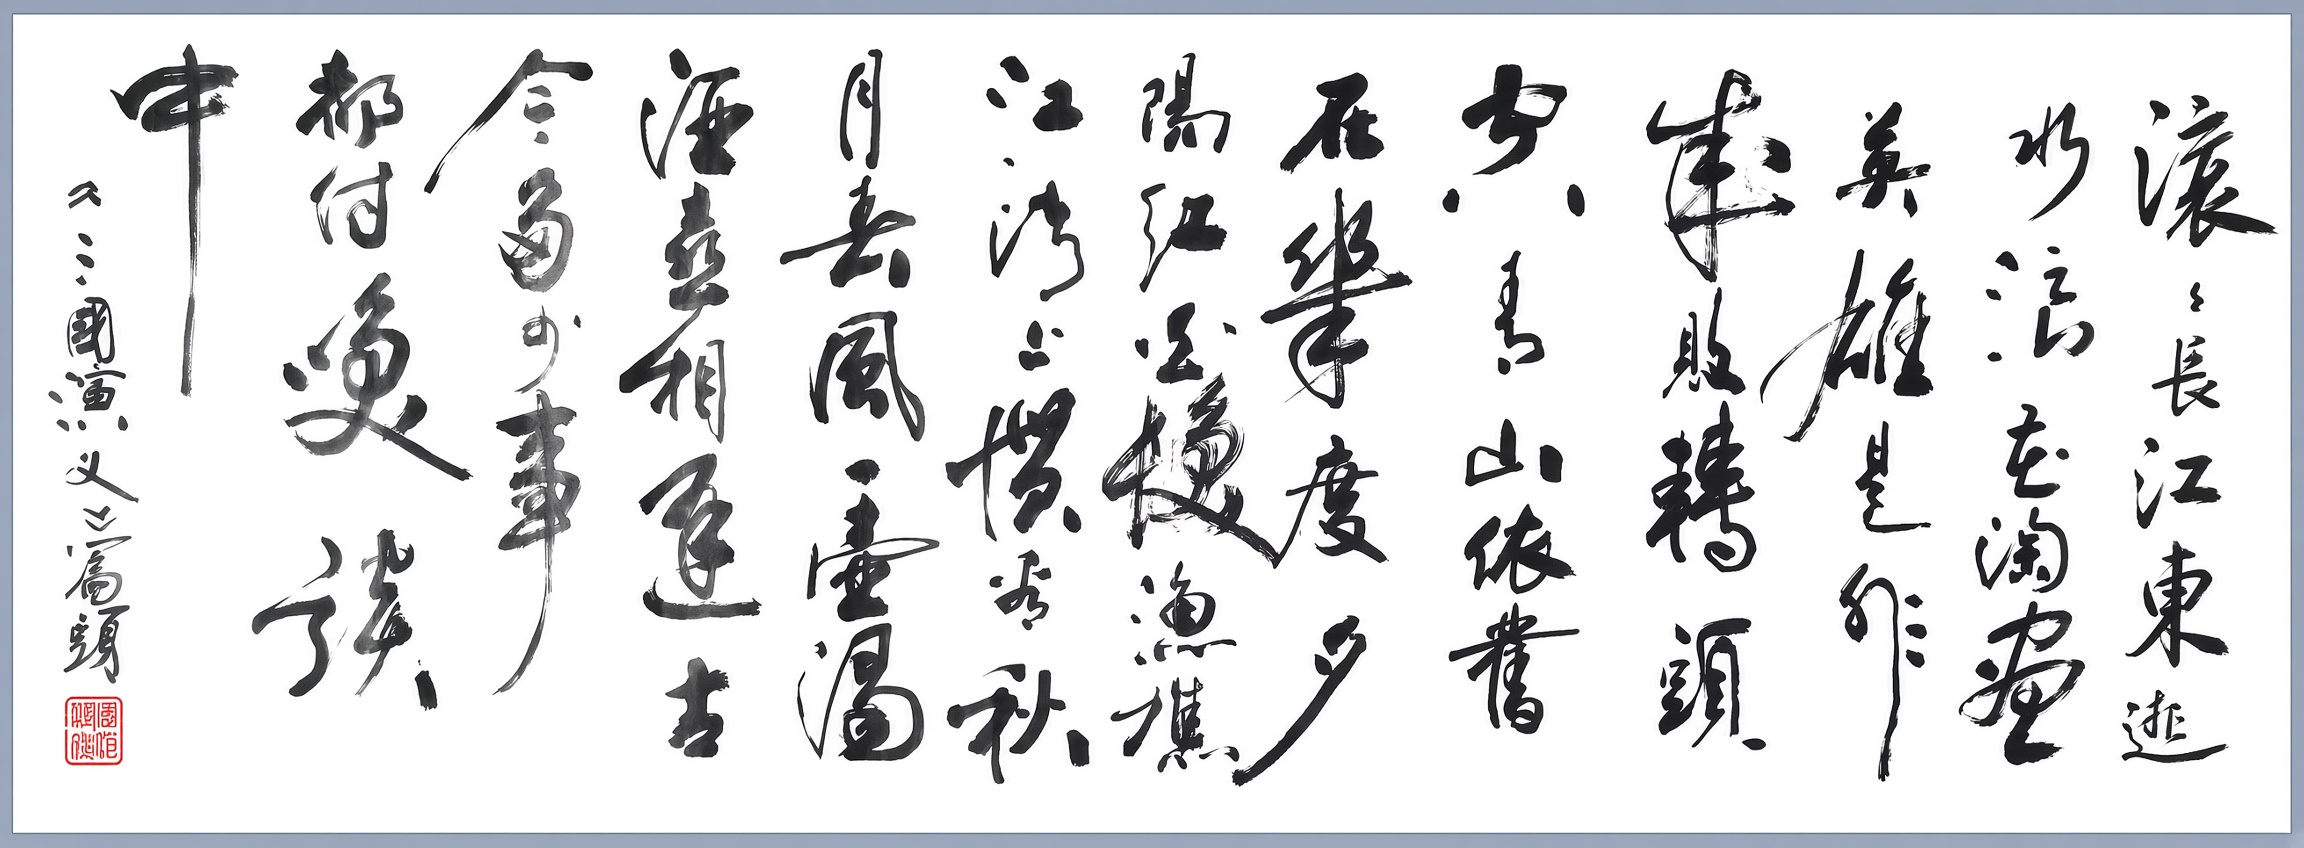 滚〻長江東逝
水浪花淘盡
英雄是非
成敗轉頭
空青山依舊
在幾度夕
陽紅白髮漁樵
江渚上慣看秋
月春風一壺濁
酒喜相逢古
今多少事
都付笑談
中
三國演义之篇頭